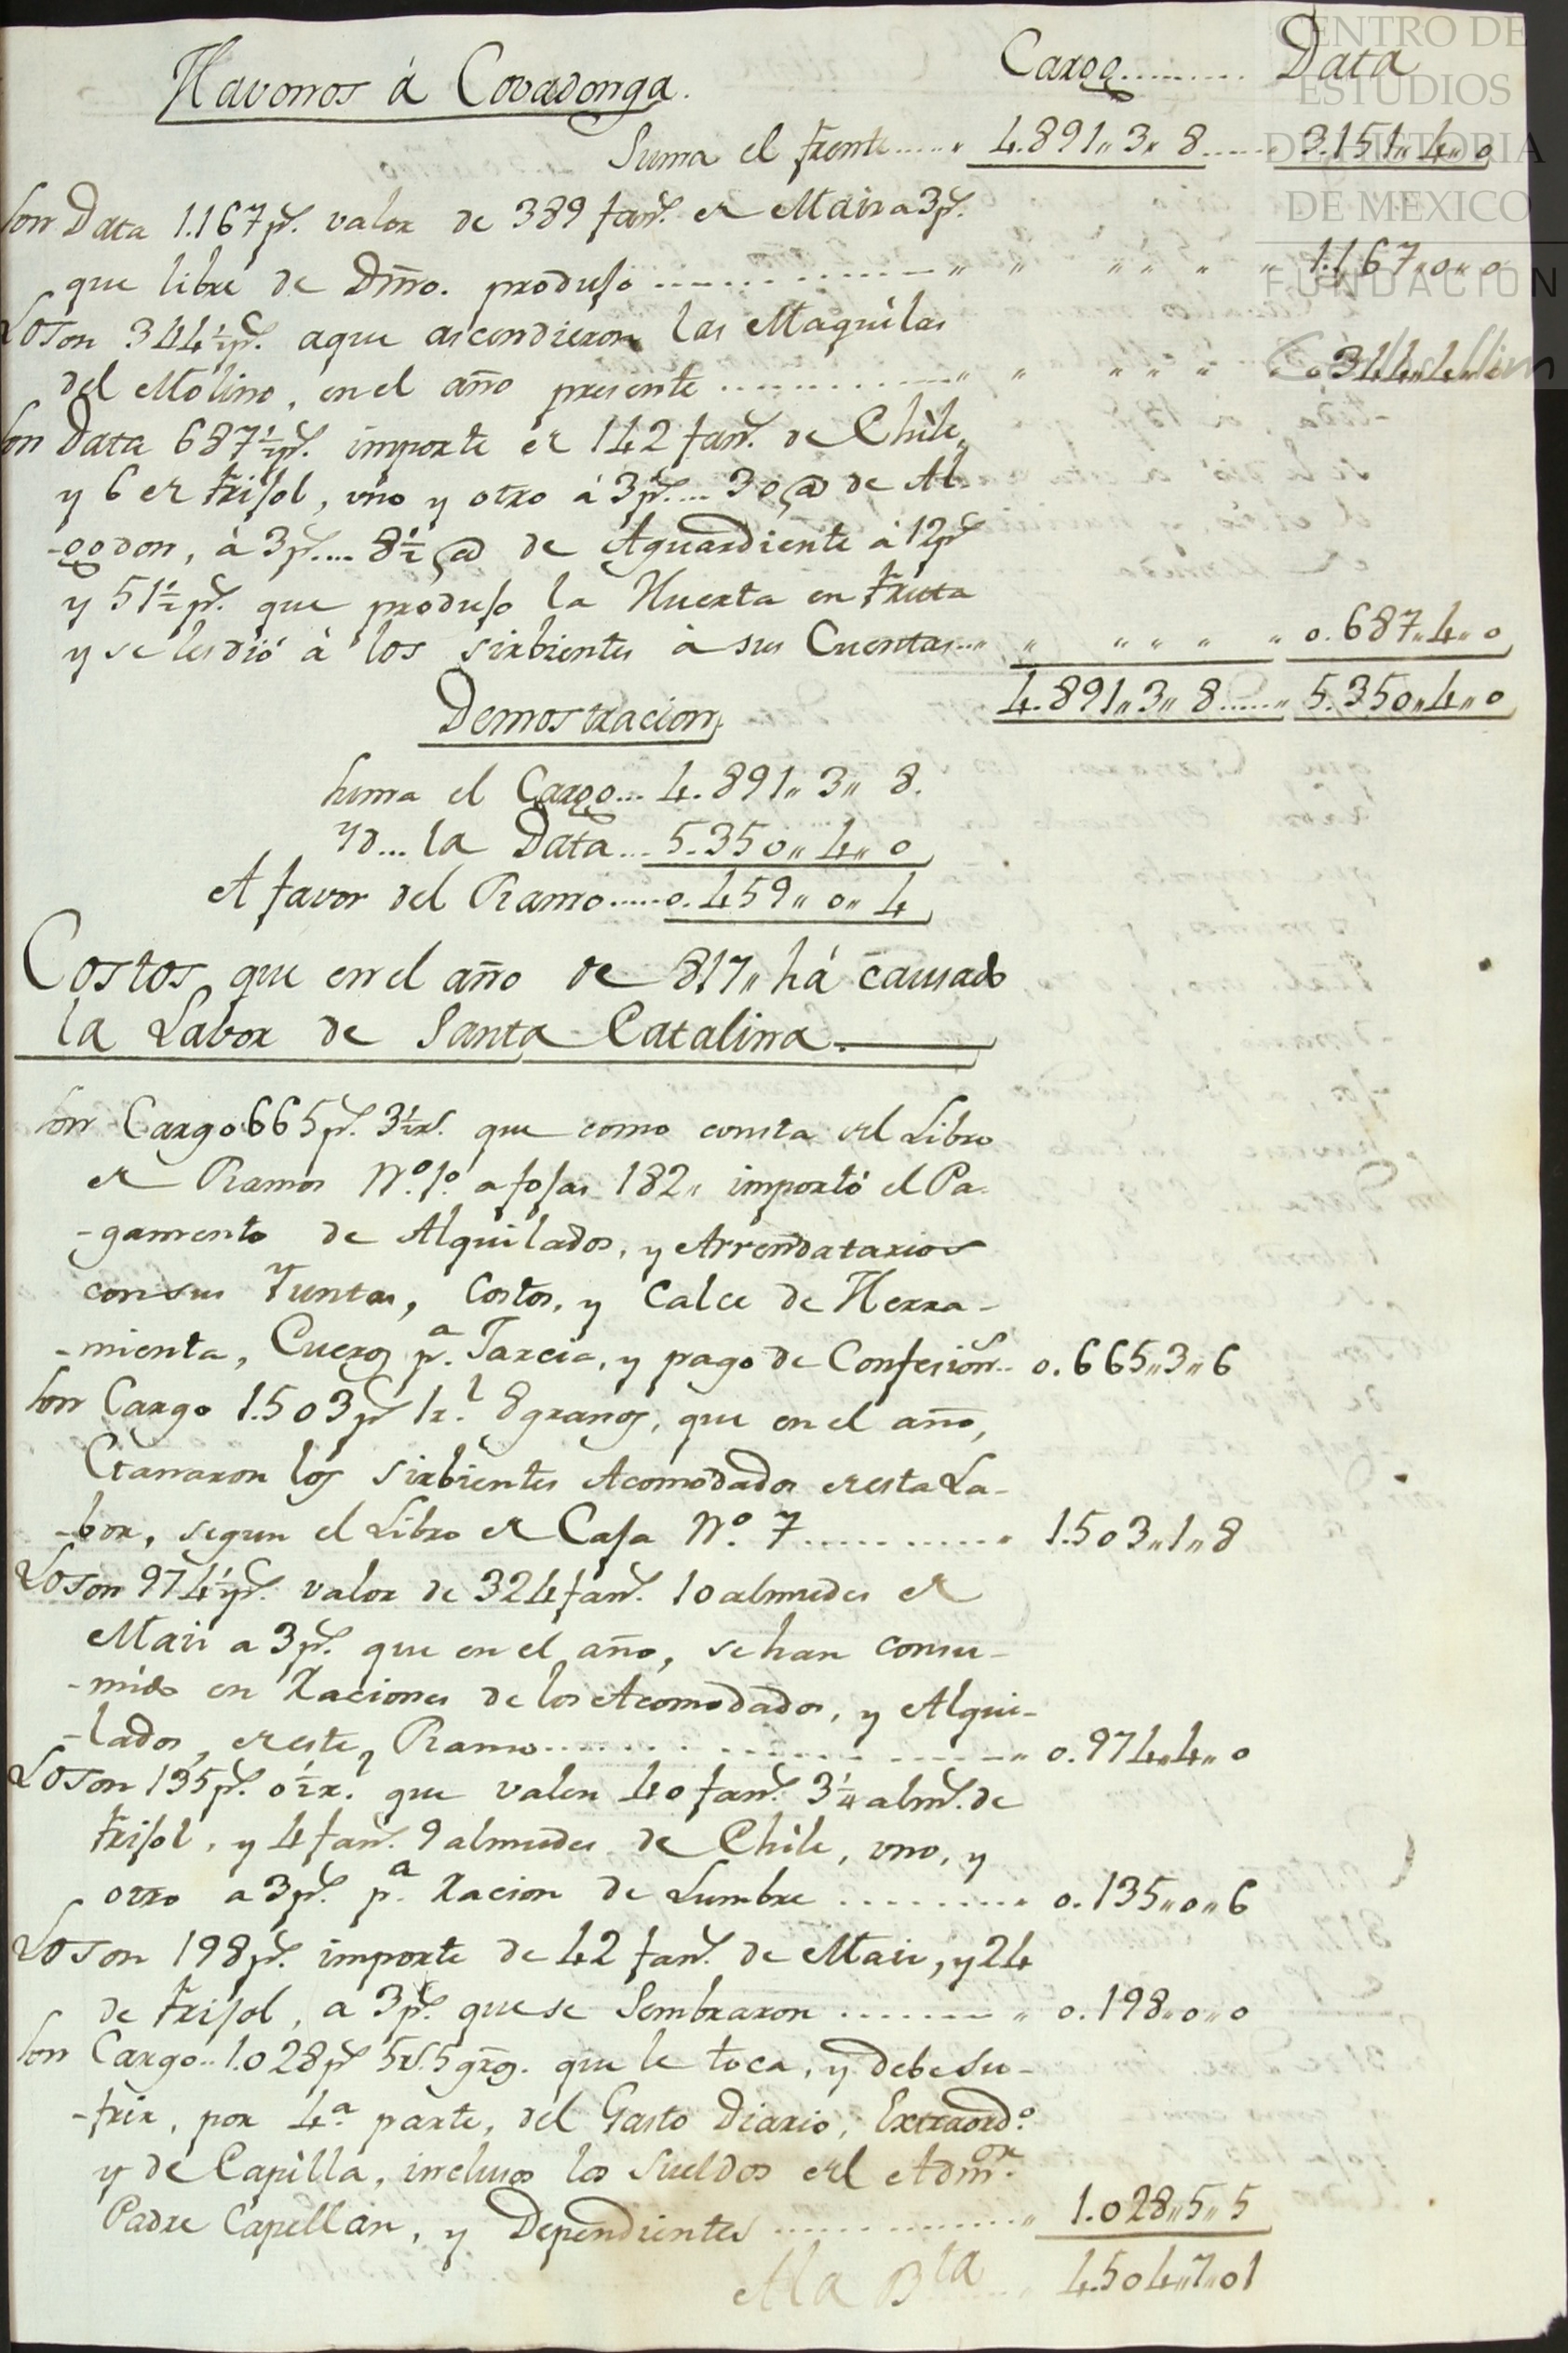 Havonos á Covadonga.
Cargo......... Data
Suma el frente..... 4.891,, 3,, 8...... 3.151,, 4,, 0
Son Data 1.167 p.s valor de 389 fan.s er Maiz a 3 p.s
que libre de Dmo. produjo ............. 1.167,, 0,, 0
Lo Son 344½ p.s aque ascendieron las Maquilas
del Molino, en el año presente ............. 0.344,, 4,, 0
Son Data 687½ p.s importe er 142 fan.s de Chile,
y 6 er frisol, uno y otro á 3 p.s ... 30 @ de Al-
-godon, á 3 p.s .... 8½ @ de Aguardiente á 12 p.s
y 51½ p.s que produjo la Huerta en fruta
y se les dió á los sirbientes á sus Cuentas... 0.687,, 4,, 0
4.891,, 3,, 8...... 5.350,, 4,, 0
Demostracion
Suma el Cargo... 4.891,, 3,, 8.
Yd... la Data... 5.350,, 4,, 0
A favor del Ramo..... 0.459,, 0,, 4
Costos que en el año de 817,, há causado
la Labor de Santa Catalina.
Son Cargo 665 p.s 3½ r.s que como consta erl Libro
er Ramos N.º 1.º a fojas 182,, importó el Pa-
-gamento de Alquilados, y Arrendatarios
con sus Yuntas, Costos, y Calce de Herra-
-mienta, Cueros p.a Tarcia, y pago de Confesion.. 0.665,, 3,, 6
Son Cargo 1.503 p.s 1 r.l 8 granos, que en el año,
Ganaron los sirbientes Acomodados er esta La-
-bor, segun el Libro er Casa N.º 7 ........... 1.503,, 1,, 8
Lo Son 974½ p.s valor de 324 fan.s 10 almudes er
Maiz a 3 p.s que en el año, se han consu-
-mido en Raciones de los Acomodados, y Alqui-
-lados, er este Ramo............. 0.974,, 4,, 0
Lo Son 135 p.s 0½ r.l que valen 40 fan.s 3¼ alm.s de
frisol, y 4 fan.s 9 almudes de Chile, uno, y
otro a 3 p.s p.a Racion de Lumbre ......... 0.135,, 0,, 6
Lo Son 198 p.s importe de 42 fan.s de Maiz, y 24
de frisol, a 3 p.s que se Sembraron ......... 0.198,, 0,, 0
Son Cargo.. 1.028 p.s 5 r.s 5 gr.os que le toca, y debe su-
-frir, por 4.a parte, del Gasto Diario, Extraord.º
y de Capilla, inclusos los Sueldos erl Adm.or
Padre Capellan, y Dependientes ............. 1.028,, 5,, 5
A la B.ta 4.504,, 7,, 01
CENTRO DE
ESTUDIOS
DE HISTORIA
DE MEXICO
FUNDACIÓN